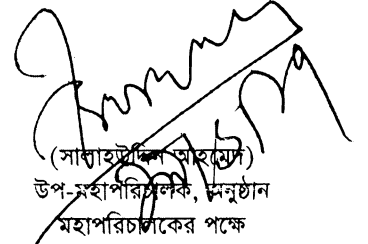 (সালাহউদ্দিন আহমেদ)
উপ-মহাপরিচালক, অনুষ্ঠান
মহাপরিচালকের পক্ষে